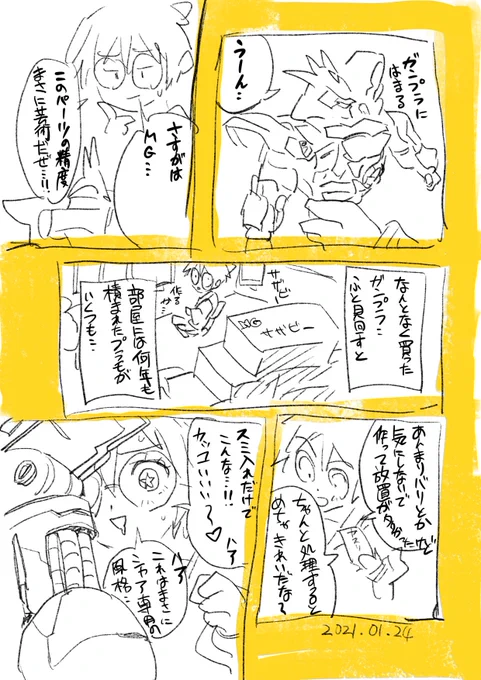 ガンプラに
はまる
うーん…
さすがは
MG…
このパーツの精度
まさに芸術だぜ…!!
なんとなく買った
ガンプラ…
ふと見回すと
サザビー
作る
か…
MG
サザビー
部屋には何年も
積まれたプラモが
いくつも…
あんまりバリとか
気にしないで
作って放置が多かったけど
ちゃんと処理すると
めちゃきれいだな〜
スミ入れだけで
こんな…!!
カッコいい…〜♡
ハア
ハア
これはまさに
シャア専用の
風格…
2021.01.24